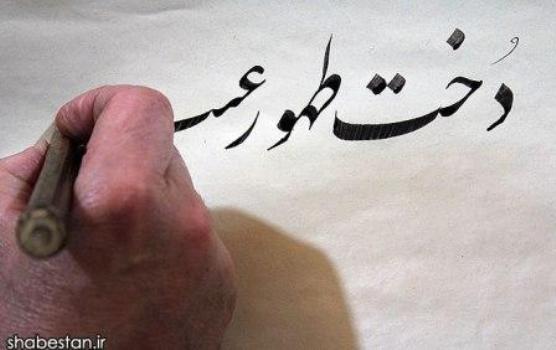 دُخت طهور عـ
shabestan.ir